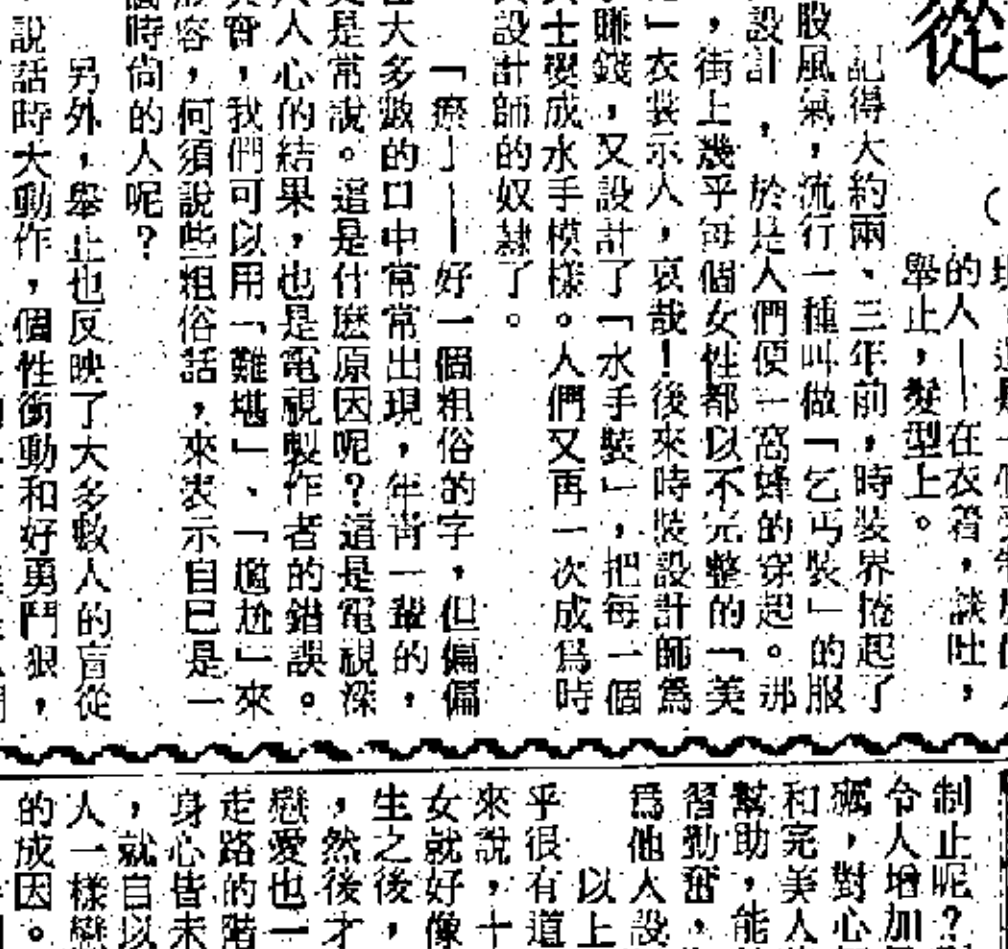 從
的人——在衣着，談吐，
舉止，髮型上。
記得大約兩、三年前，時裝界捲起了
股風氣，流行一種叫做「乞丐裝」的服
設計，於是人們便一窩蜂的穿起。那
，街上幾乎每個女性都以不完整的「美
」衣裳示人，哀哉！後來時裝設計師爲
賺錢，又設計了「水手裝」，把每一個
士變成水手模樣。人們又再一次成爲時
設計師的奴隸了。
「」——好一個粗俗的字，但偏偏
大多數的口中常常出現，年青一輩的，
是常說。這是什麽原因呢？這是電視深
人心的結果，也是電視製作者的錯誤。
實，我們可以用「難堪」、「尷尬」來
容，何須說些粗俗話，來表示自已是一
時尚的人呢？
另外，舉止也反映了大多數人的盲從
說話時大動作，個性衝動和好勇鬥狠，
制止呢？
令人增加
礪，對心
和完美人
幫助，能
習勤奮，
爲他人設
以上
乎很有道
來說，十
女就好像
生之後，
，然後才
戀愛也一
走路的階
身心皆未
，就自以
人一樣戀
的成因。